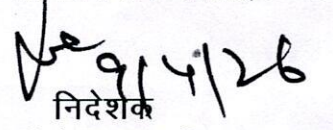 9/4/26
निदेशक